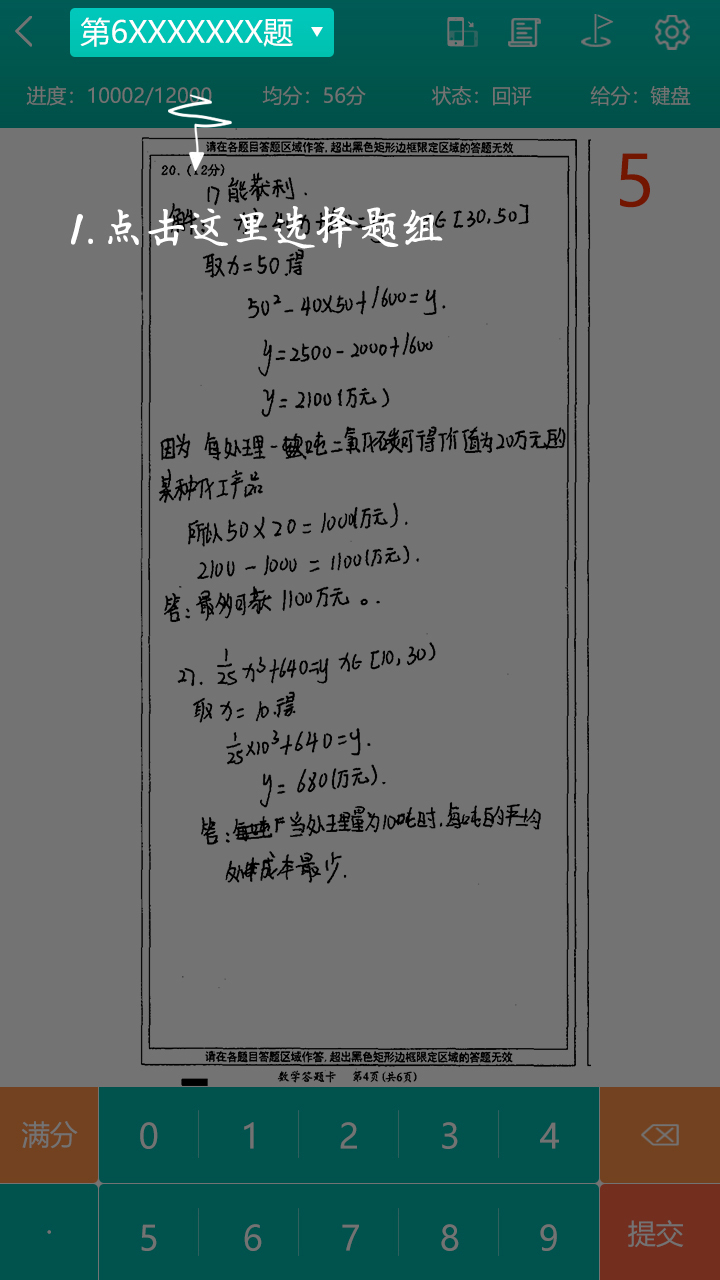 第6XXXXXXX题
进度：10002/12000 均分：56分 状态：回评 给分：键盘
请在各题目答题区域作答，超出黑色矩形边框限定区域的答题无效
5
20.（12分）
1) 能获利.
1.点击这里选择题组
∈[30,50]
取x=50得
50²-40×50+1600=y.
y=2500-2000+1600
y=2100(万元)
因为 每处理一吨二氧化碳可得价值为20万元的
某种化工产品
所以50×20=1000(万元).
2100-1000=1100(万元).
答:最多可获1100万元。.
27. 1/25 x³+640=y x∈[10,30)
取x=10得
1/25×10³+640=y.
y=680(万元).
答: 当处理量为10吨时,每吨的平均
成本最少.
请在各题目答题区域作答，超出黑色矩形边框限定区域的答题无效
数学答题卡 第4页(共6页)
满分 0 1 2 3 4
· 5 6 7 8 9 提交